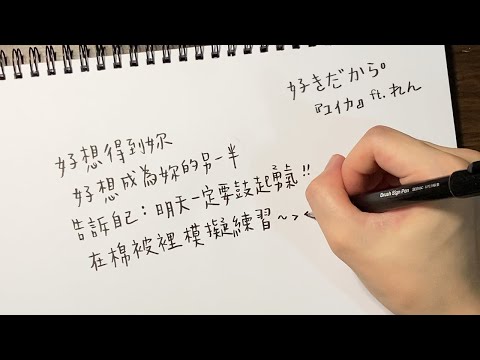 好きだから。
『ユイカ』ft.れん
好想得到妳
好想成為妳的另一半
告訴自己：明天一定要鼓起勇氣!!
在棉被裡模擬練習~>
Brush Sign Pen